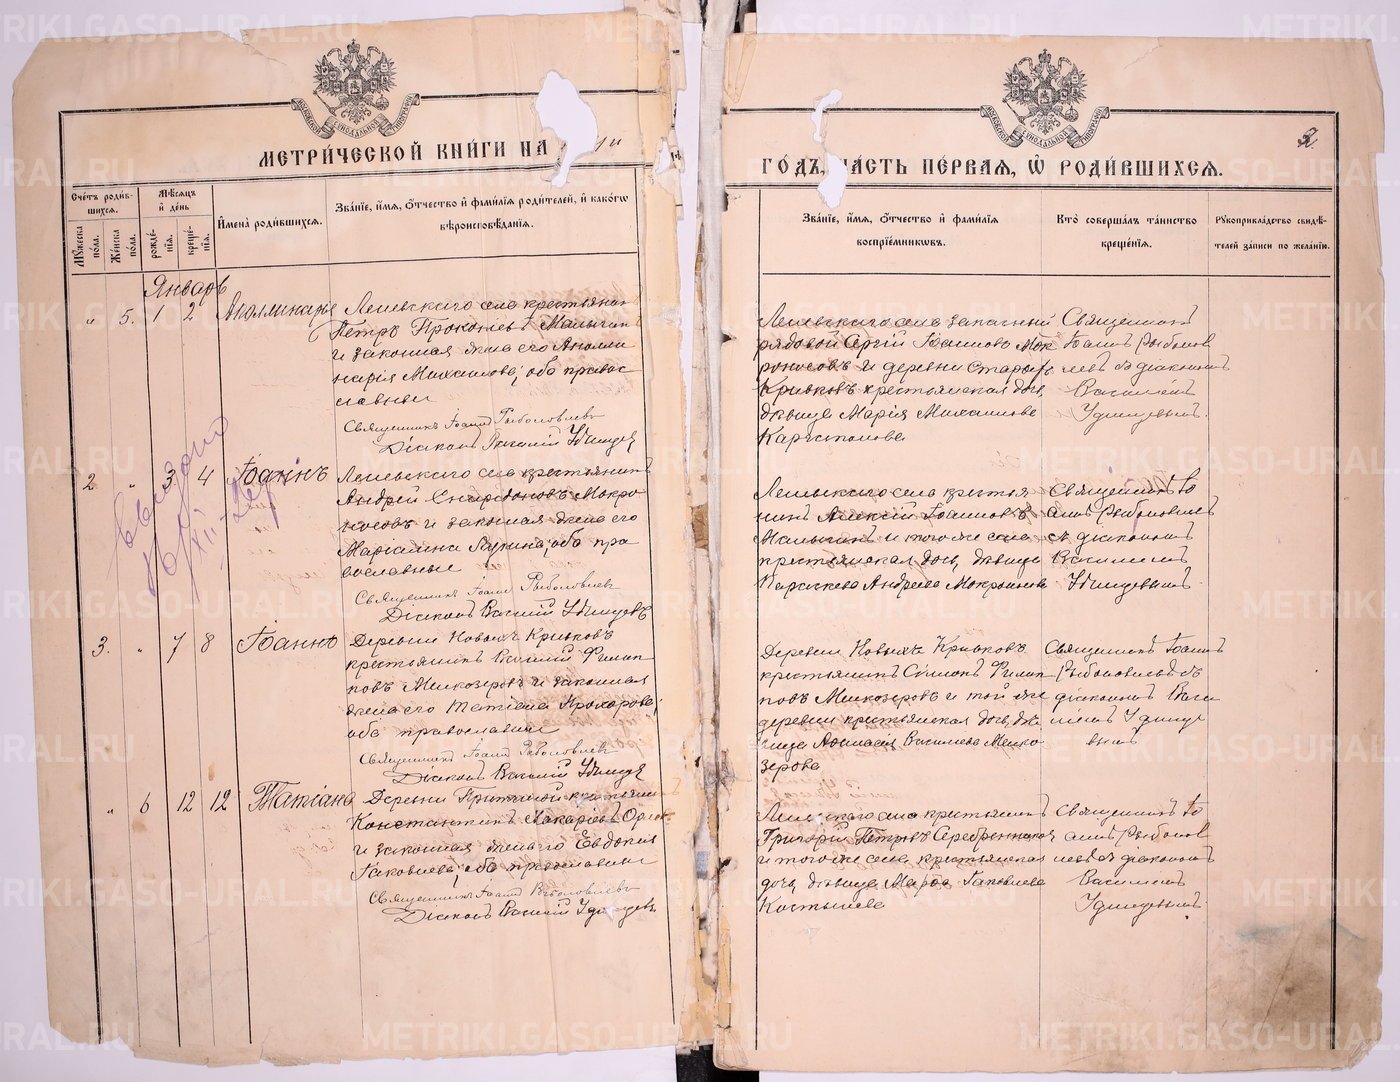 МЕТРИ́ЧЕСКОЙ КНИ́ГИ НА
ГО́ДЪ, ЧА́СТЬ ПЕ́РВАЯ, Ѡ҆ РОДИ́ВШИХСЯ.
2.
Сче́тъ роди́в-
шихся.
Мѣ́сяцъ
и҆ де́нь
Му́жеска по́ла.
Же́нска по́ла.
рожде́-
нїя.
креще́-
нїя.
И҆мена̀ роди́вшихся.
Зва́нїе, и҆́мя, ѻ҆́тчество и҆ фами́лїя роди́телей, и҆ како́гѡ
вѣроисповѣ́данїя.
Зва́нїе, и҆́мя, ѻ҆́тчество и҆ фами́лїя
воспрїе́мниковъ.
Кто̀ соверша́лъ та́инство
креще́нїя.
Рꙋкоприкла́дство свидѣ́-
телей за́писи по жела́нїю.
Январь
" 5. 1 2 Аполлинарія
Лешевскаго села крестьянин
Петръ Прокопьев Малыгин
и законная жена его Аполли
нарія Михаилова; оба право
славные
Священникъ Іоаннъ Рыболовлевъ
Діаконъ Василій Удинцевъ
Лешевскаго села запасный
рядовой Сергій Іоанновъ Мок
роносовъ и деревни Старыхъ
Кривковъ крестьянская дочь,
дѣвица Марія Михаилова
Каргополова
Священникъ
Іоаннъ Рыболов
левъ съ діакономъ
Василіемъ
Удинцевымъ.
2 " 3 4 Іоаннъ
Лешевскаго села крестьянинъ
Андрей Спиридоновъ Мокро
носовъ и законная жена его
Маріамна; оба пра
вославные
Священникъ Іоаннъ Рыболовлевъ
Діаконъ Василій Удинцевъ
Лешевскаго села крестья
нинъ Алексій Іоанновъ
Малыгинъ и того же села
крестьянская дочь, дѣвица
Параскева Андреева Мокроносова
Священникъ Іо
аннъ Рыболовлевъ
съ діакономъ
Василіемъ
Удинцевымъ.
3. " 7 8 Іоаннъ
Деревни Новыхъ Кривковъ
крестьянинъ Василій Филип
повъ Мелкозеровъ и законная
жена его Татіана Прохорова;
оба православные
Священникъ Іоаннъ Рыболовлевъ
Діаконъ Василій Удинцевъ
Деревни Новыхъ Кривковъ
крестьянинъ Симонъ Филип
повъ Мелкозеровъ и той же
деревни крестьянская дочь, дѣ
вица Аѳанасія Василіева Мелко
зерова
Священникъ Іоаннъ
Рыболовлевъ съ
діакономъ Васи
ліемъ Удинце
вымъ
" 6 12 12 Татіана
Деревни крестьянинъ
Константинъ Захаріевъ
и законная жена его Евдокія
Іаковлева; оба православные
Священникъ Іоаннъ Рыболовлевъ
Діаконъ Василій Удинцевъ
Лешевскаго села крестьянинъ
Григорій Петровъ Серебренников
и того же села, крестьянская
дочь, дѣвица Марѳа Іаковлева
Костылева
Священникъ Іо
аннъ Рыболов
левъ съ діакономъ
Василіемъ
Удинцевымъ.
METRIKI.GASO-URAL.RU